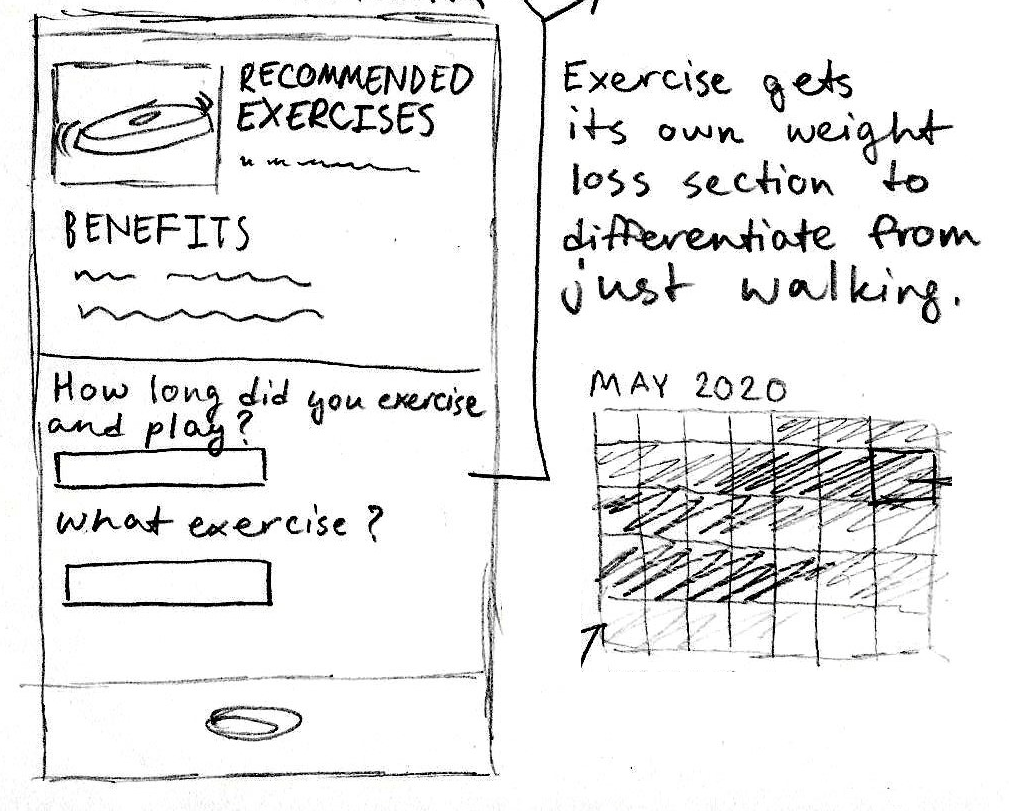 RECOMMENDED
EXERCISES
BENEFITS
How long did you exercise
and play?
What exercise?
Exercise gets
its own weight
loss section to
differentiate from
just walking.
MAY 2020